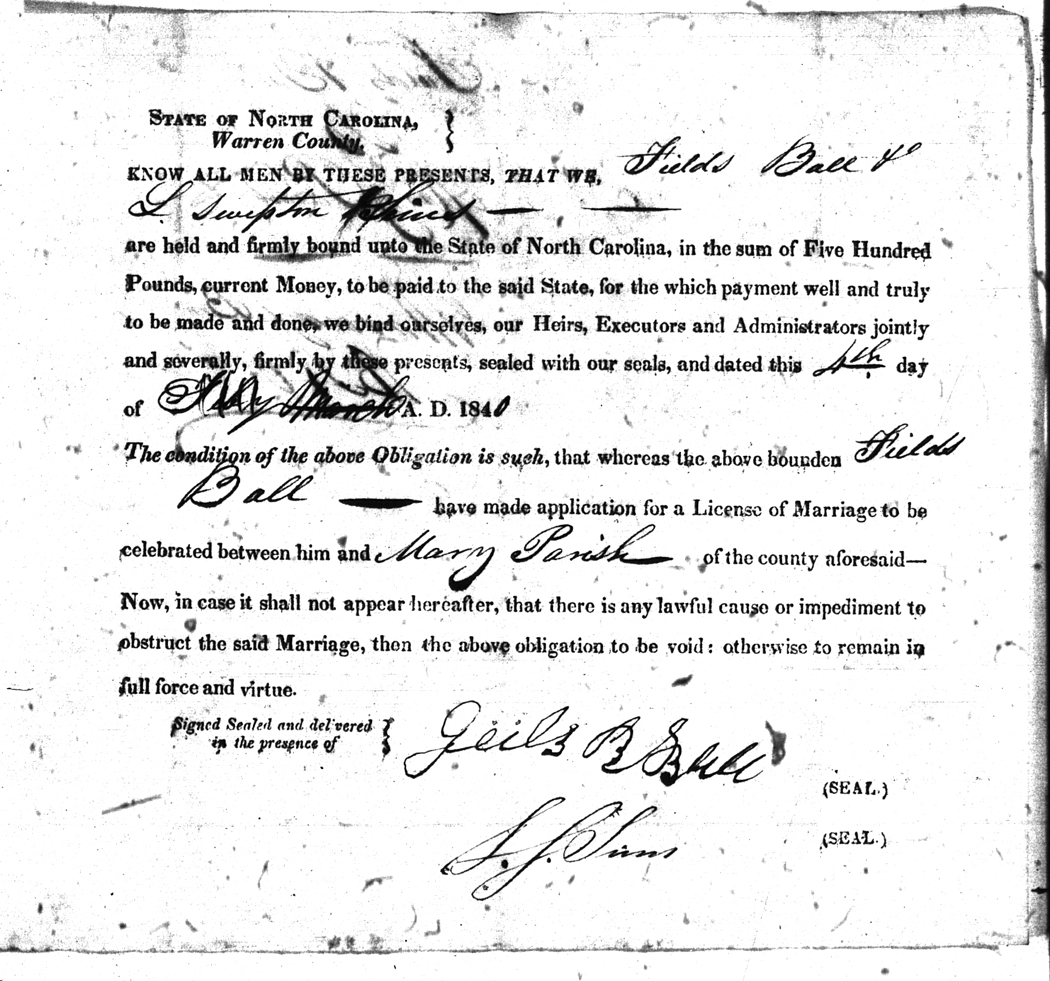 STATE OF NORTH CAROLINA,
Warren County,
KNOW ALL MEN BY THESE PRESENTS, THAT WE, Fields Ball &
L Swepson Sims
are held and firmly bound unto the State of North Carolina, in the sum of Five Hundred
Pounds, current Money, to be paid to the said State, for the which payment well and truly
to be made and done, we bind ourselves, our Heirs, Executors and Administrators jointly
and severally, firmly by these presents, sealed with our seals, and dated this 4th day
of March A. D. 1840
The condition of the above Obligation is such, that whereas the above bounden Fields
Ball have made application for a License of Marriage to be
celebrated between him and Mary Parish of the county aforesaid—
Now, in case it shall not appear hereafter, that there is any lawful cause or impediment to
obstruct the said Marriage, then the above obligation to be void: otherwise to remain in
full force and virtue.
Signed Sealed and delivered
in the presence of
B Ball
(SEAL.)
L. S. Sims
(SEAL.)